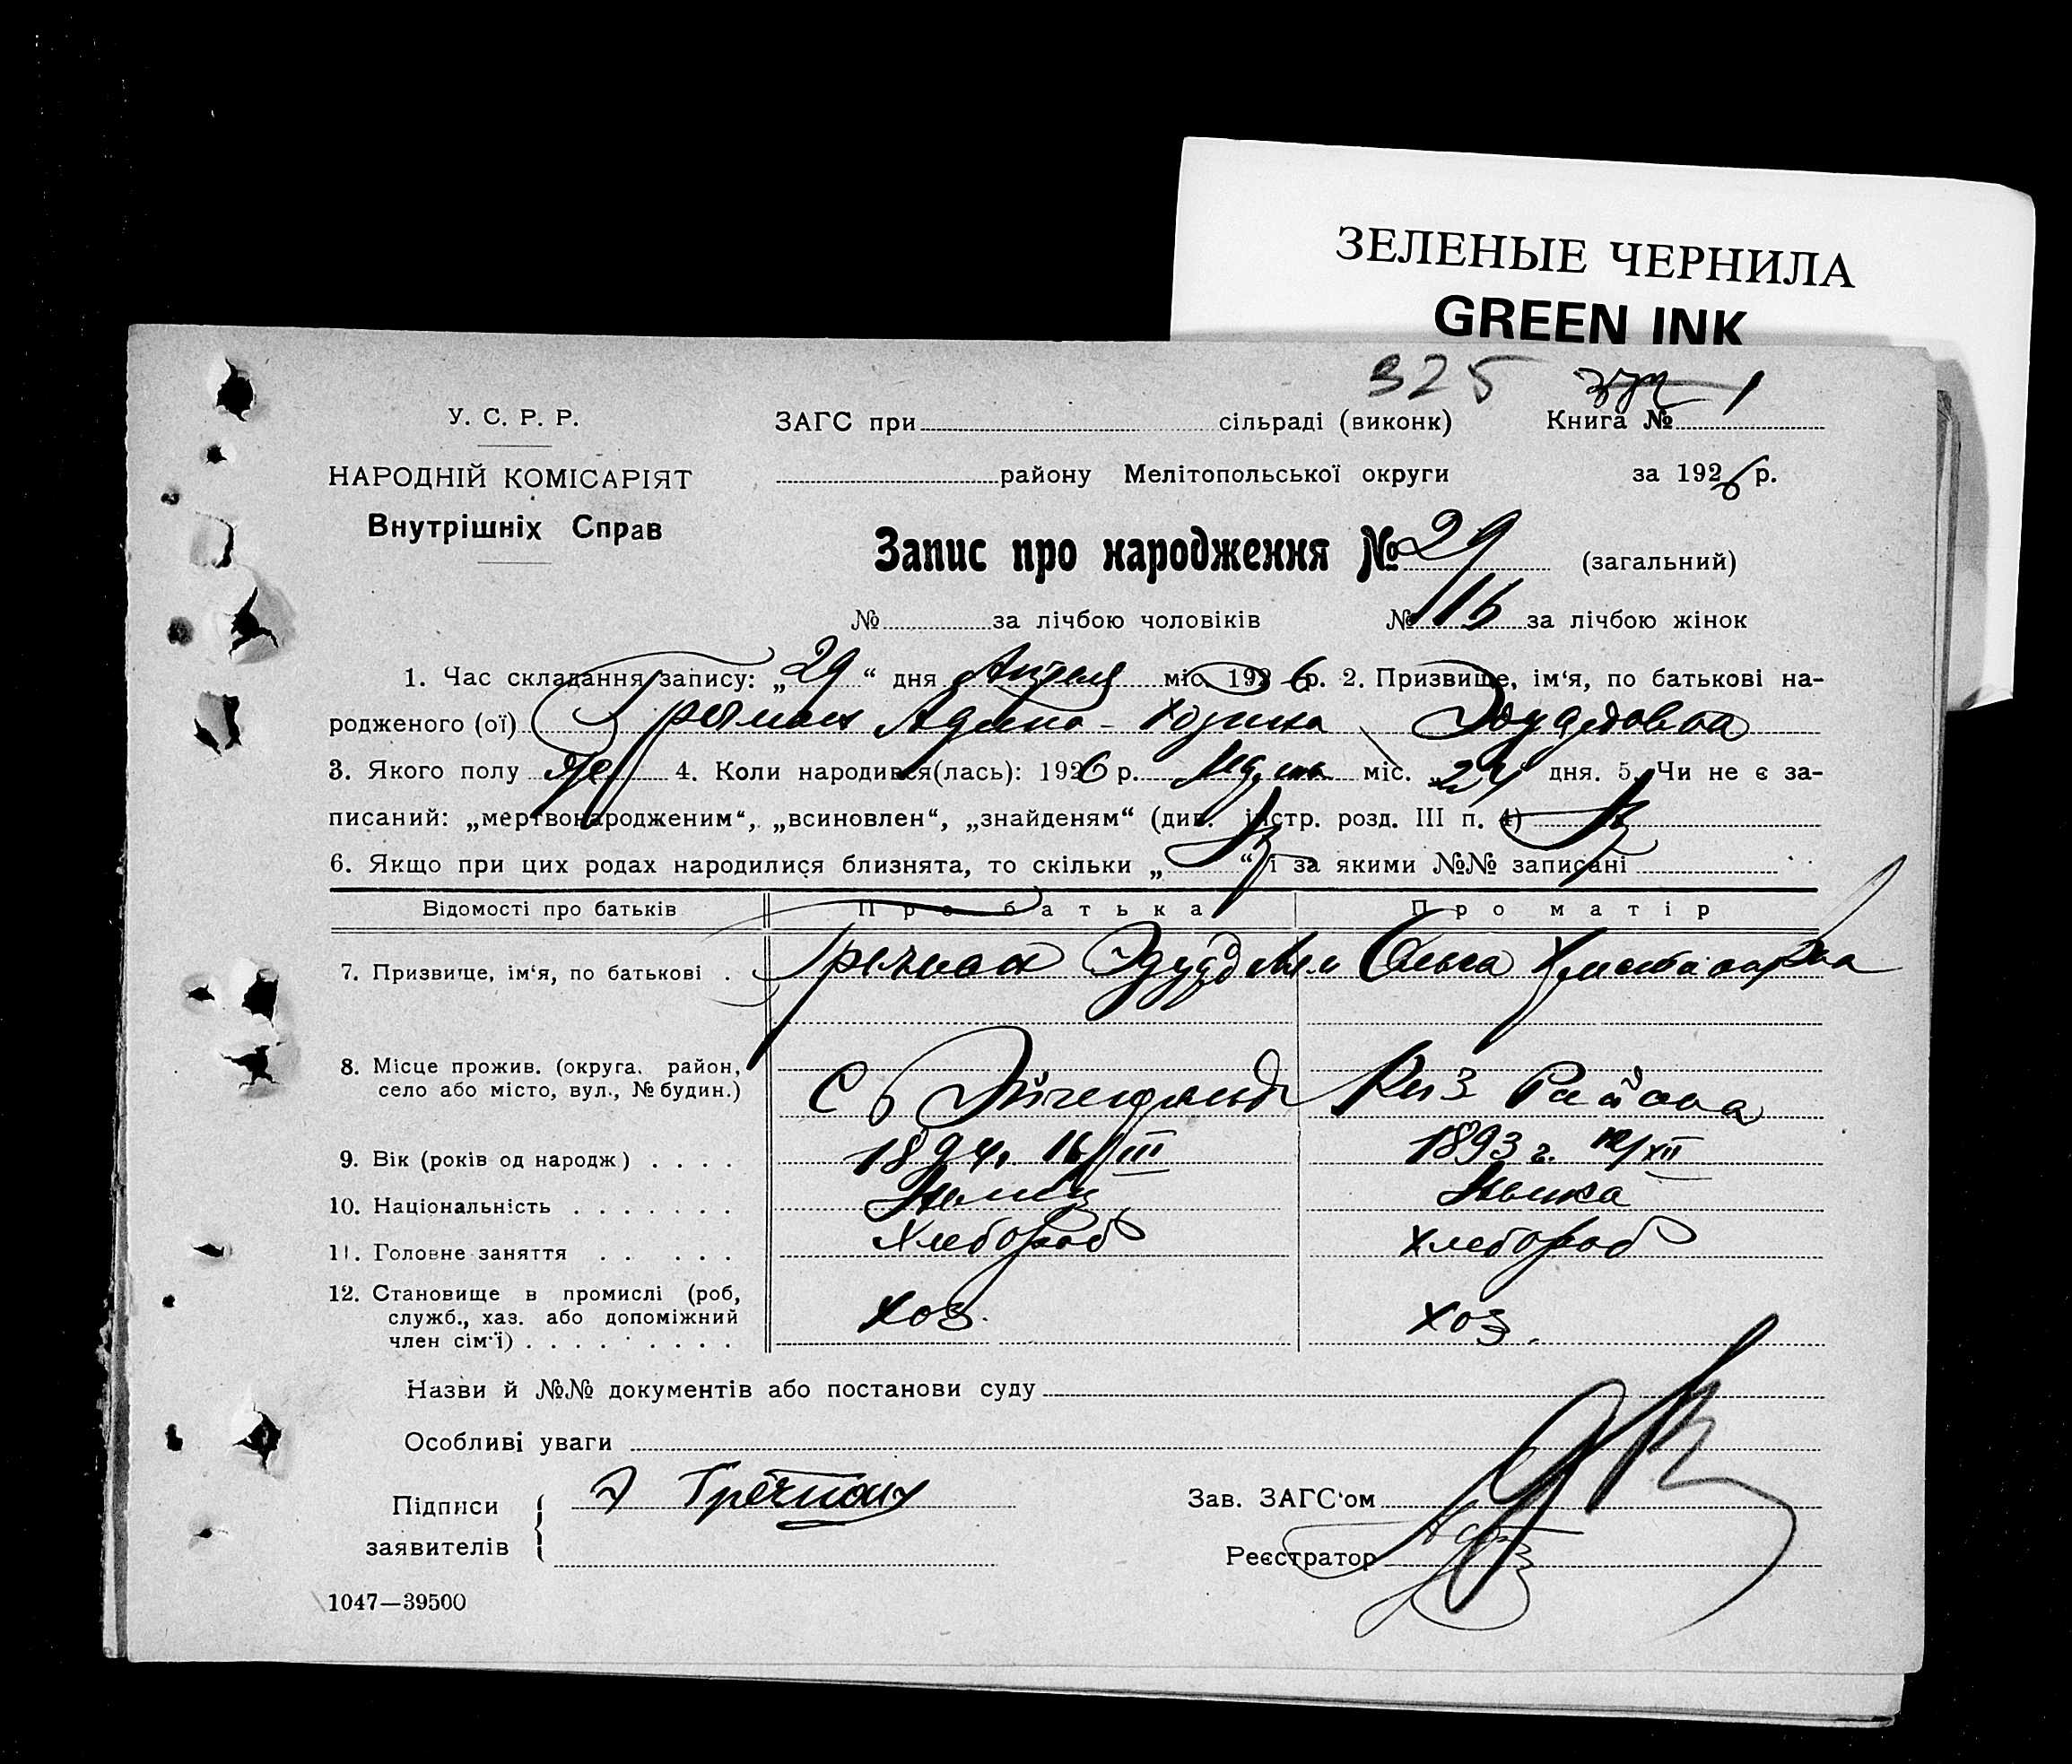 ЗЕЛЕНЫЕ ЧЕРНИЛА
GREEN INK
325 1
У. С. Р. Р. ЗАГС при сільраді (виконк) Книга №
НАРОДНІЙ КОМІСАРІЯТ району Мелітопольської округи за 1926 р.
Внутрішніх Справ
Запис про народження № 29 (загальний)
№ за лічбою чоловіків № 15 за лічбою жінок
1. Час складання запису: „29“ дня Апреля міс. 1926 р. 2. Призвище, ім‘я, по батькові на-
родженого (ої) Эдуардовна
3. Якого полу же 4. Коли народився(лась): 1926 р. міс. „ дня. 5. Чи не є за-
писаний: „мертвонародженим“, „всиновлен“, „знайденям“ (див. інстр. розд. III п. 4)
6. Якщо при цих родах народилися близнята, то скільки „ “ і за якими №№ записані
Відомості про батьків Про батька Про матір
7. Призвище, ім‘я, по батькові Ольга
8. Місце прожив. (округа. район, село або місто, вул., № будин.) С Района
9. Вік (років од народж) 1894 г. 16/III 1893 г. 12/XII
10. Національність Немец Немка
11. Головне заняття Хлебороб Хлебороб
12. Становище в промислі (роб, служб., хаз. або допоміжний член сім‘ї) хоз. хоз.
Назви й №№ документів або постанови суду
Особливі уваги
Підписи заявителів Э
Зав. ЗАГС‘ом
Реєстратор
1047—39500